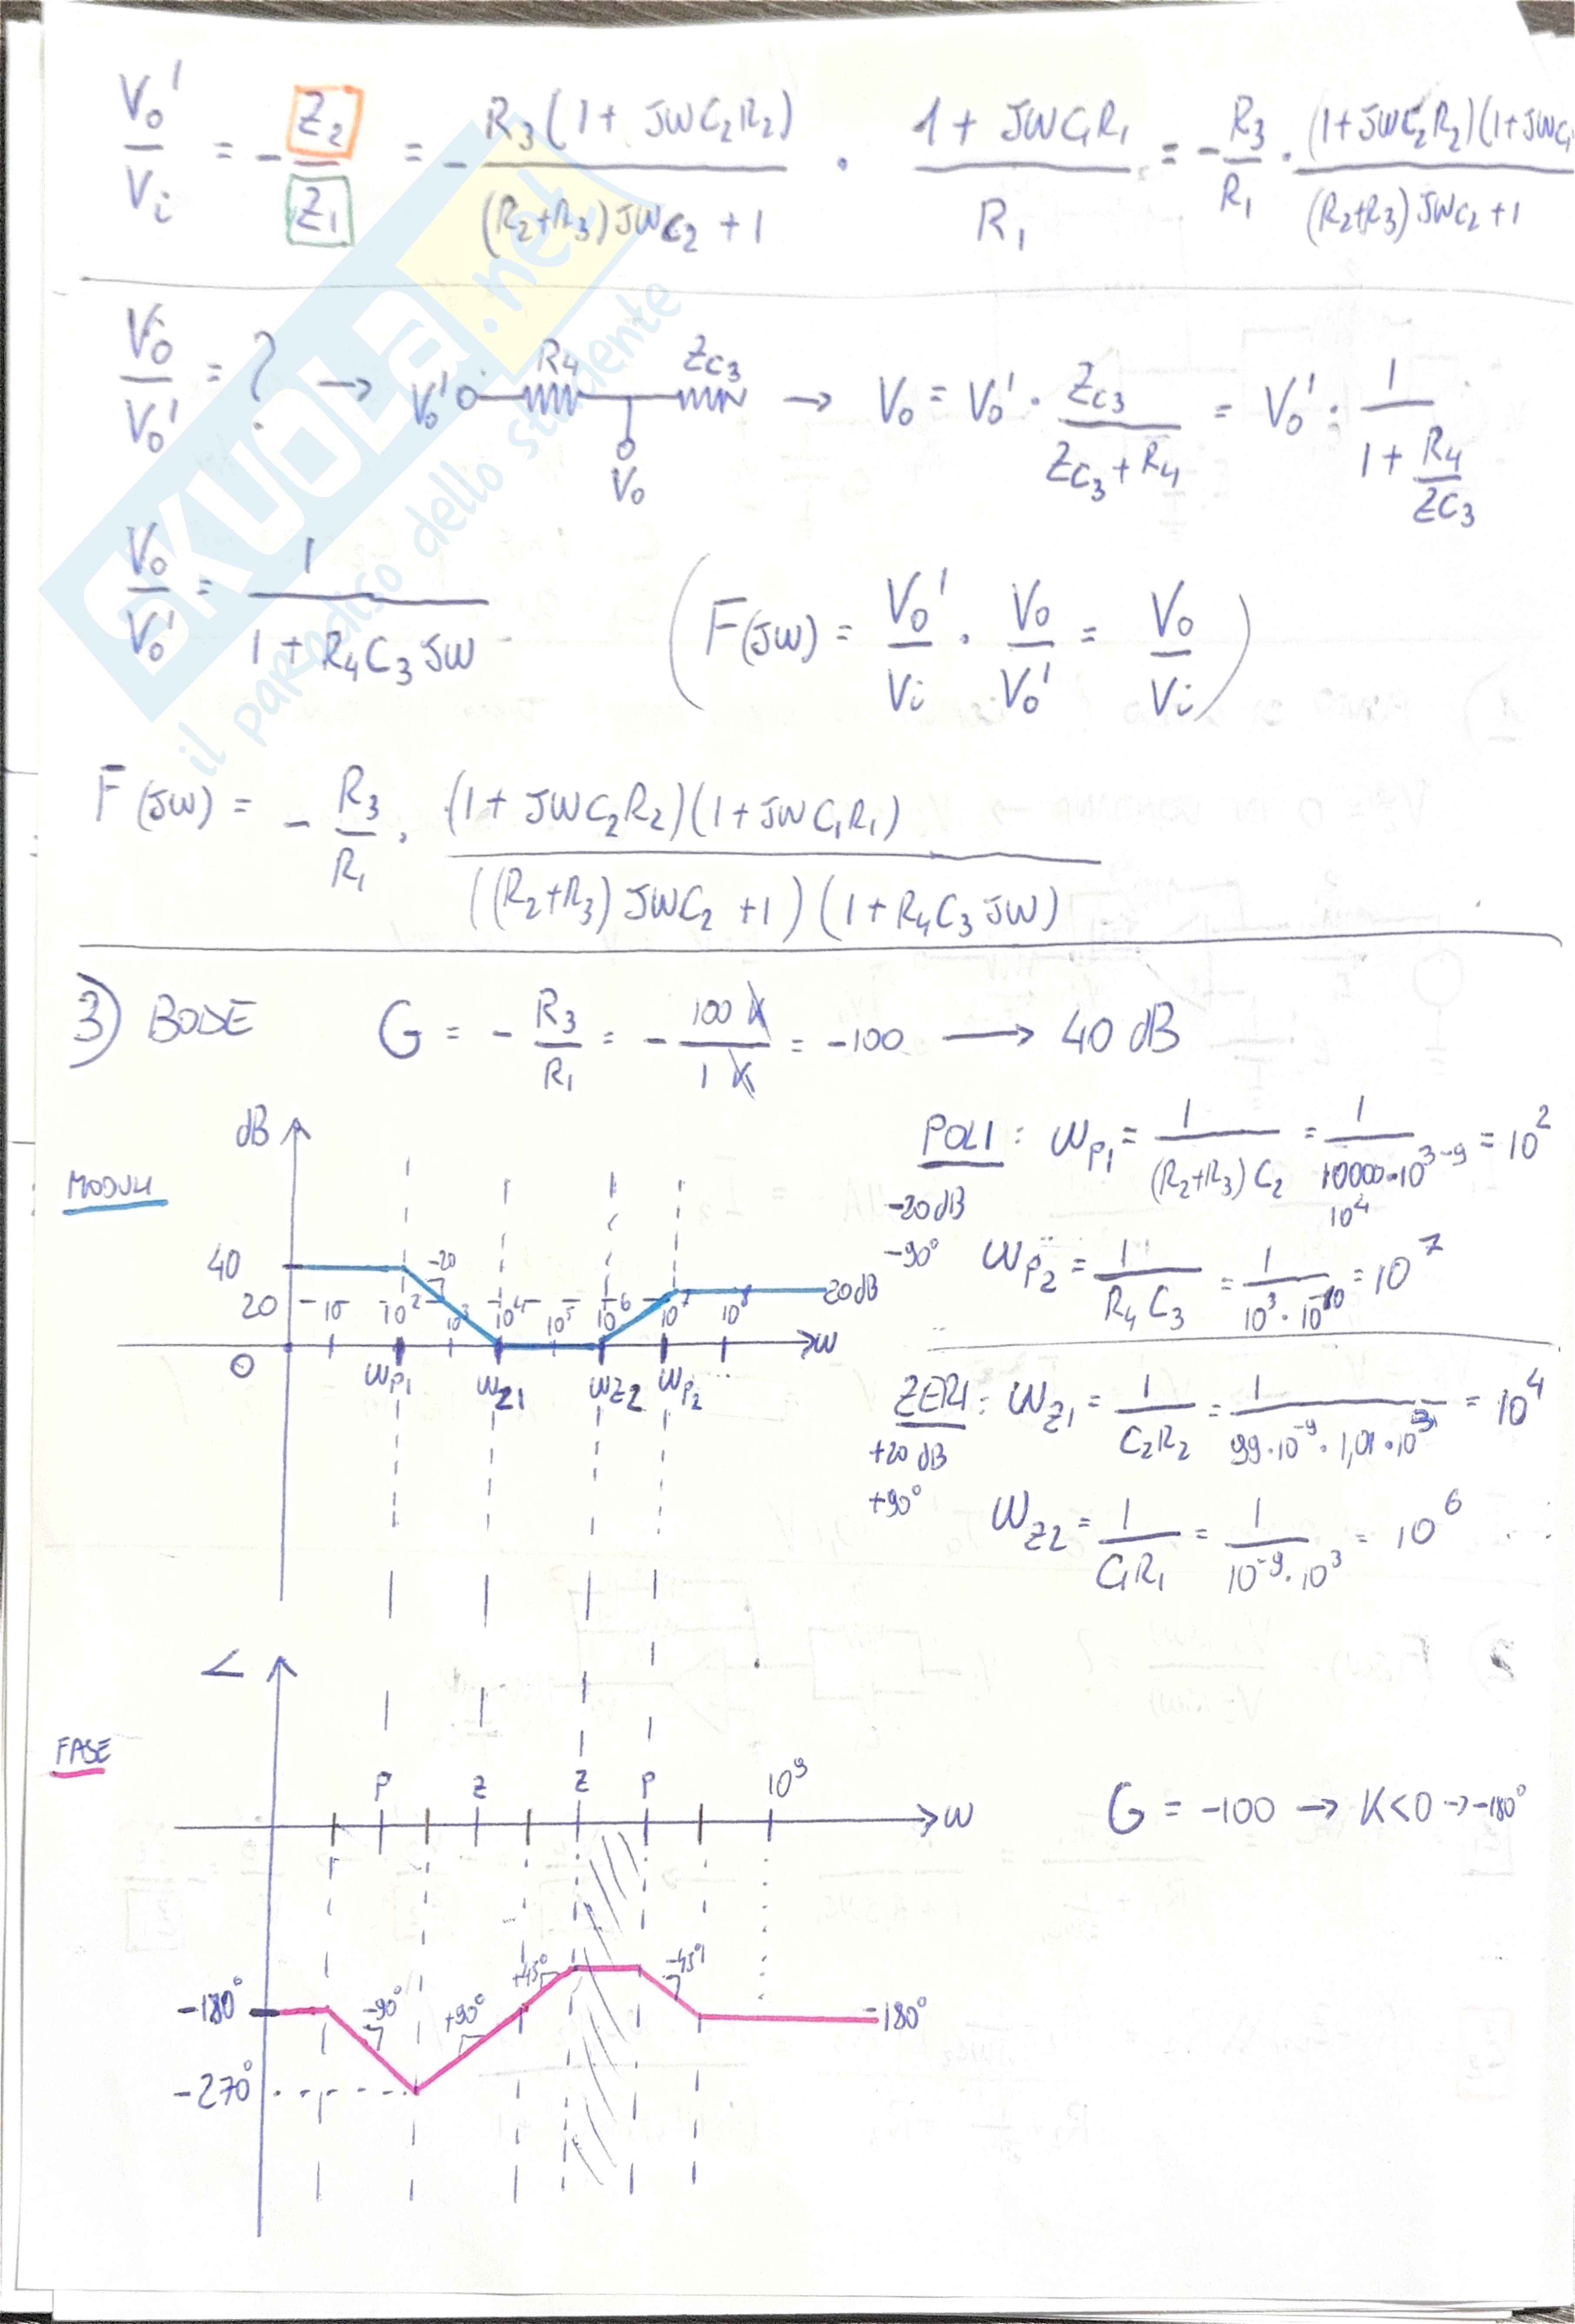 Vo'/Vi = - Z2/Z1 = - R3(1+ JWC2R2)/((R2+R3)JWC2 +1) · (1+ JWC1R1)/R1 = - R3/R1 · (1+JWC2R2)(1+JWC1/((R2+R3)JWC2+1
SKUOLA.net
il paradiso dello studente
Vo/Vo' = ? → Vo' R4 ZC3 Vo → Vo = Vo' · ZC3/(ZC3+R4) = Vo' · 1/(1+ R4/ZC3)
Vo/Vo' = 1/(1+R4C3JW) (F(JW) = Vo'/Vi · Vo/Vo' = Vo/Vi)
F(JW) = - R3/R1 · (1+ JWC2R2)(1+JWC1R1)/(((R2+R3)JWC2 +1)(1+R4C3JW))
3) BODE G = - R3/R1 = - 100K/1K = -100 → 40 dB
dB
MODULI
40
20
0
-20
10 10² 10³ 10⁴ 10⁵ 10⁶ 10⁷ 10⁸
20dB
W
Wp1 Wz1 Wz2 Wp2
POLI : Wp1 = 1/((R2+R3)C2) = 1/(10000·10³⁻⁹) = 10²
10⁴
-20dB
-90° Wp2 = 1/(R4C3) = 1/(10³·10⁻¹⁰) = 10⁷
ZERI : Wz1 = 1/(C2R2) = 1/(99·10⁻⁹·1,01·10³) = 10⁴
+20dB
+90° Wz2 = 1/(C1R1) = 1/(10⁻⁹·10³) = 10⁶
∠
FASE
P Z Z P 10⁹
W
G = -100 → K<0 → -180°
-180° -90° +90° +45° -45° -180°
-270°